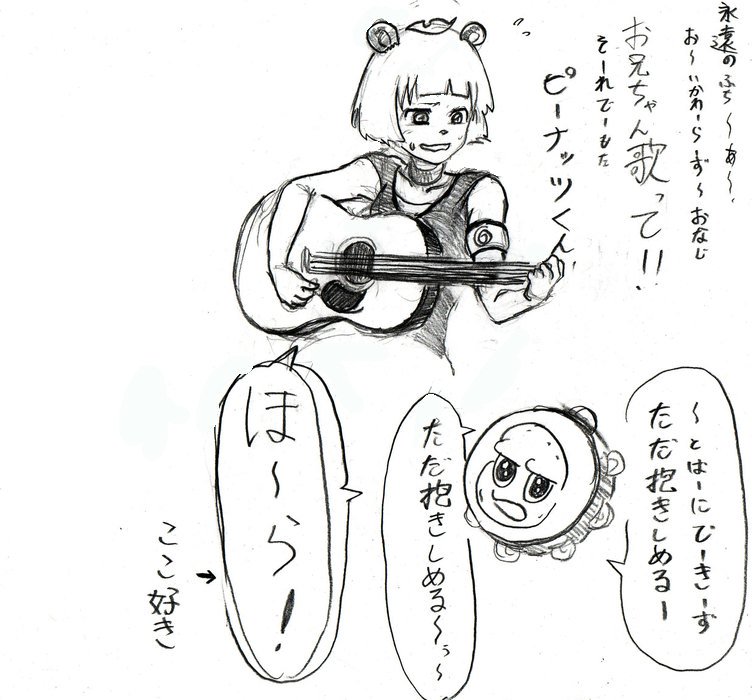 永遠のふち〜あ〜、
お〜いかわーらーず〜おなじ
お兄ちゃん歌って!!
そーれでーもた
ピーナッツくん!
〜とはーにでーきーず
ただ抱きしめるー
ただ抱きしめる〜ぅ〜
ほ〜ら!
ここ好き